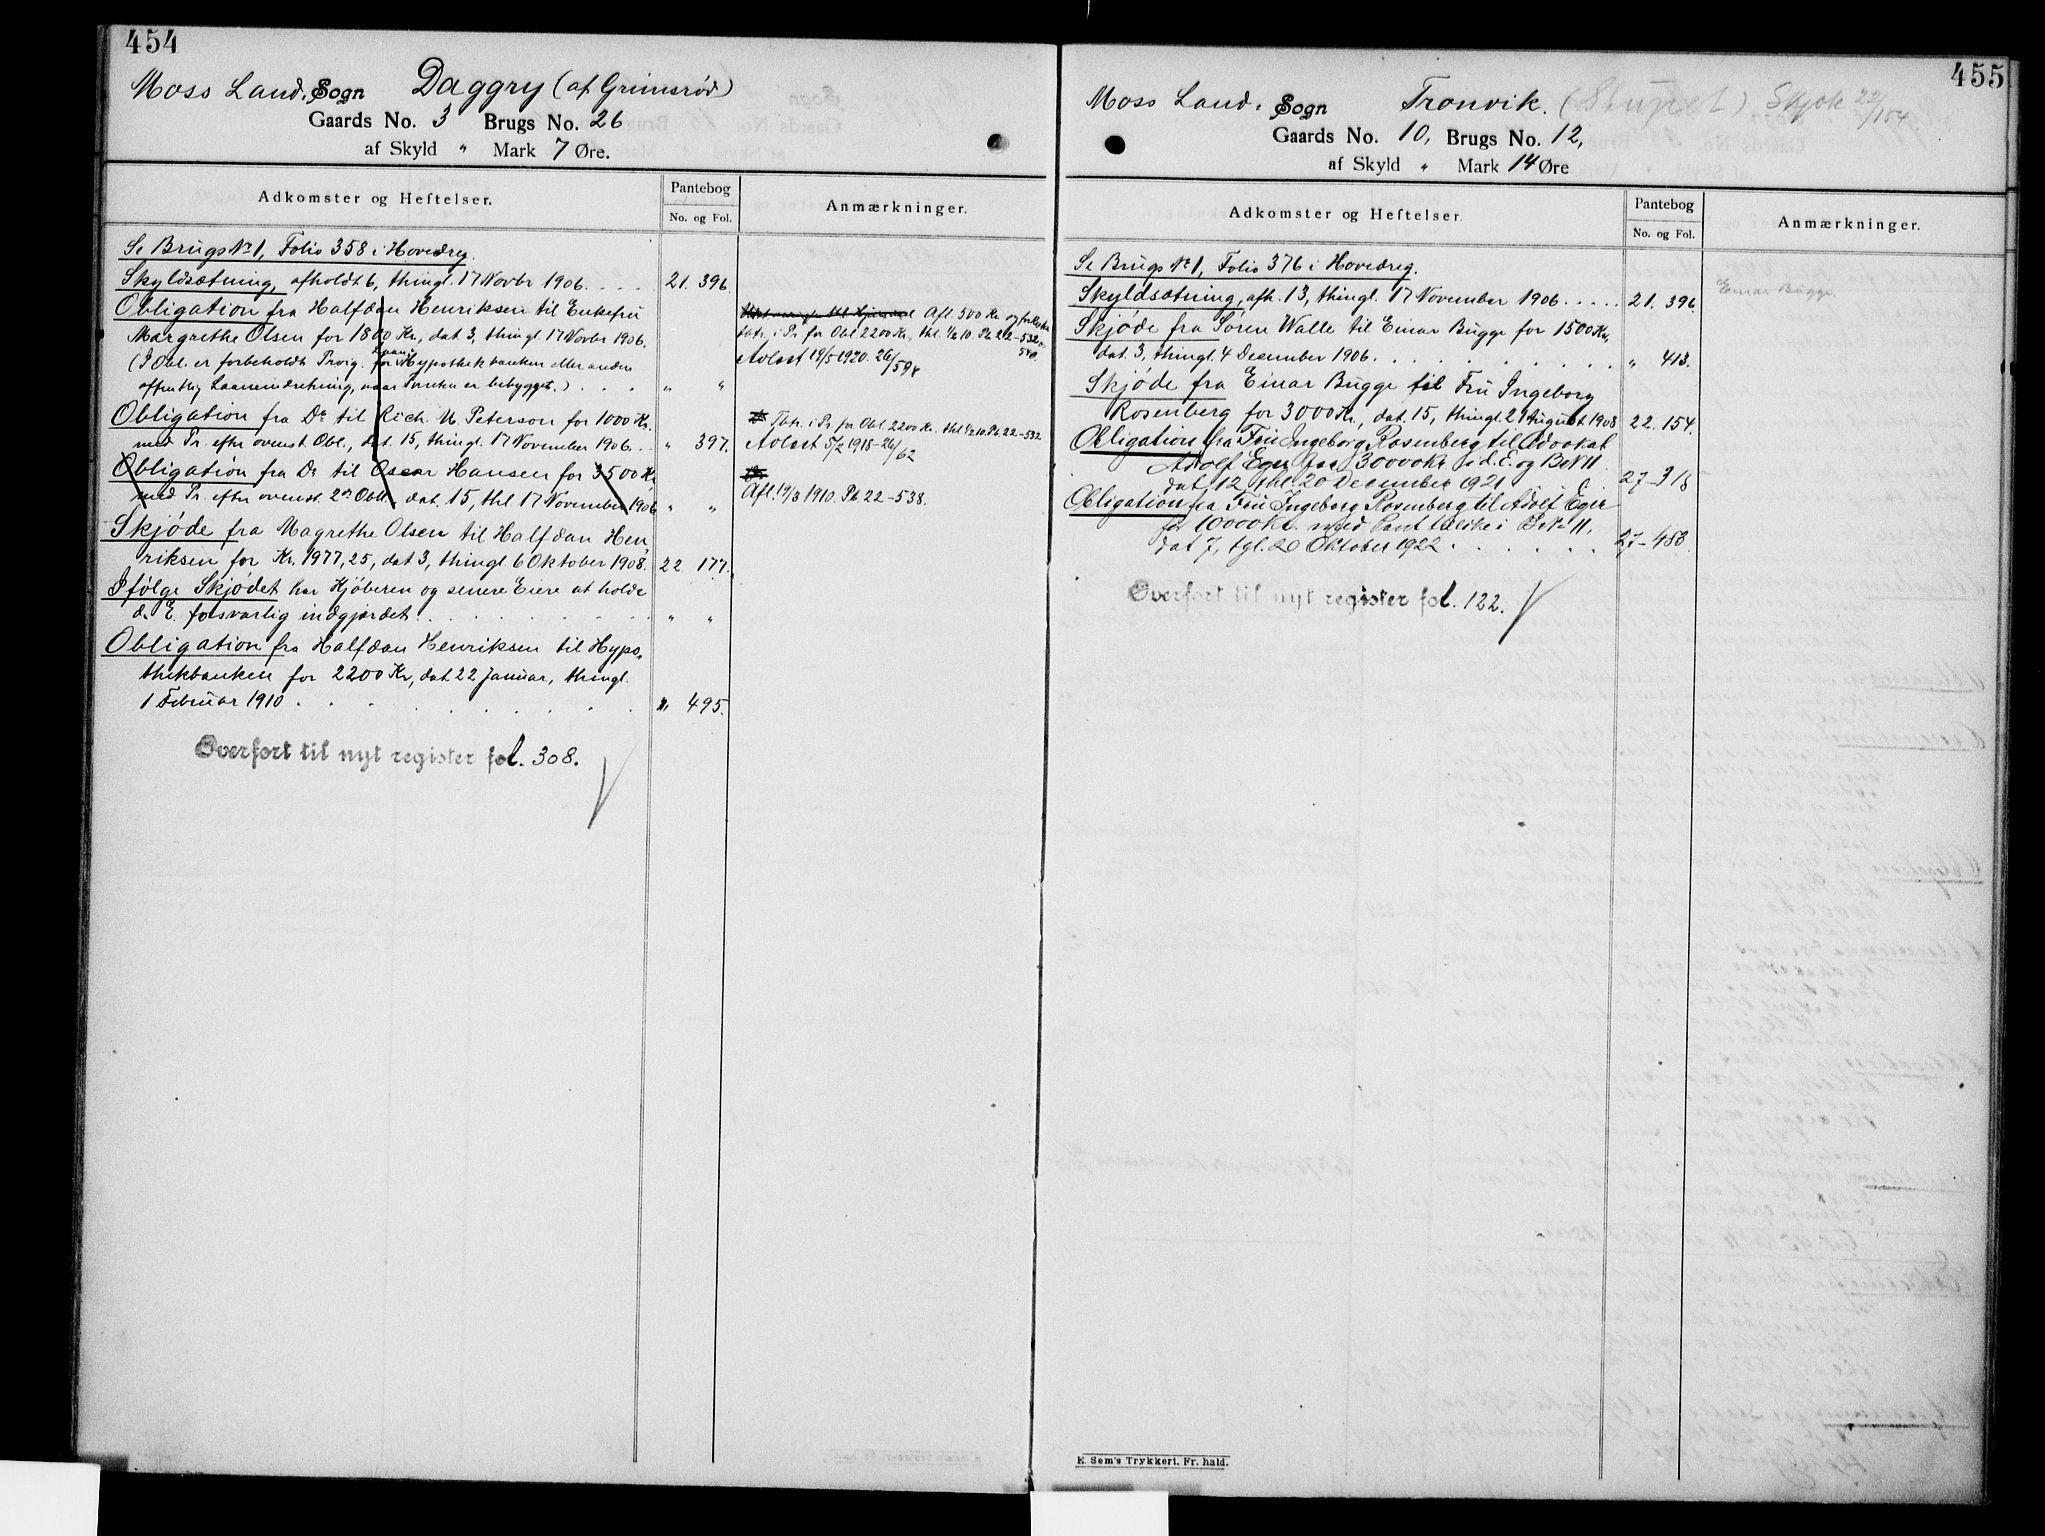 454
Moss Land. Sogn Daggry (af Grimsrød)
Gaards No. 3 Brugs No. 26
af Skyld " Mark 7 Øre.
Adkomster og Heftelser.
Pantebog
No. og Fol.
Anmærkninger.
Se Brugs No 1, Folio 358 i Hovedreg.
Skyldsætning, afholdt 6, thingl. 17 Novbr 1906. . . . 21. 396.
Obligation fra Halfdan Henriksen til Enkefru
Margrethe Olsen for 1800 Kr, dat 3, thingl 17 Novbr 1906.
(I Obl. er forbeholdt Priorig. for Laan i Hypothekbanken eller anden
offentlig Laaneindretning, naar Tomten er bebygget.) . . . " "
Afl. 500 Kr og
i Pr for Obl 2200 Kr, thl. 1/2 10. Pb 22-532
540
Avlest 19/5 1920. 26/594
Obligation fra Do til Rich. M Peterson for 1000 Kr.
med Pr. efter ovenst. Obl., dat. 15, thingl. 17 November 1906. . " 397.
Tbtr. i Pr for Obl. 2200 Kr. thl 1/2 10. Pb 22-532
Avlest 5/2 1918-26/62
Obligation fra Do til Oscar Hansen for 3500 Kr
med Pr. efter ovenst. 2de Obll. dat. 15, thl 17 November 1906 " "
Afl. 19/3 1910. Pb 22-538.
Skjøde fra Magrethe Olsen til Halfdan Hen,
riksen for Kr. 1977,25, dat 3, thingl. 6 Oktober 1908. 22 177.
Ifølge Skjødet har Kjøberen og senere Eiere at holde
d. E. forsvarlig indgjerdet. . . . . . . . " "
Obligation fra Halfdan Henriksen til Hypo,
thekbanken for 2200 Kr, dat 22 Januar, thingl.
1 Februar 1910 . . . . . . . . " 495.
Overført til nyt register fol. 308.
455
Moss Land. Sogn Tronvik. (Skuret) Skjøte 22/154
Gaards No. 10, Brugs No. 12,
af Skyld " Mark 14 Øre
Adkomster og Heftelser.
Pantebog
No. og Fol.
Anmærkninger.
Se Brugs No 1, Folio 376 i Hovedreg.
Skyldsætning, afh. 13, thingl. 17 November 1906 . . . . . 21. 396
Einar Bugge.
Skjøde fra Søren Walle til Einar Bugge for 1500 Kr,
dat. 3, thingl. 4 December 1906. . . . . . . . " 413.
Skjøde fra Einar Bugge til Fru Ingeborg
Rosenberg for 3000 Kr, dat. 15, thingl. 21 August 1908 22. 154.
Obligation fra Fru Ingeborg Rosenberg til Advokat
Adolf Eger for 30000 Kr i d. E. og B No 11
dat. 12, thl. 20 December 1921 . . . 27-318
Obligation fra Fru Ingeborg Rosenberg til Adolf Eger
for 10000 Kr. med Pant bl.a. i B No 11,
dat 7, tgl. 20 Oktober 1922 . . . . . . 27-488.
Overført til nyt register fol. 122.
E. Sem's Trykkeri. Fr. hald.